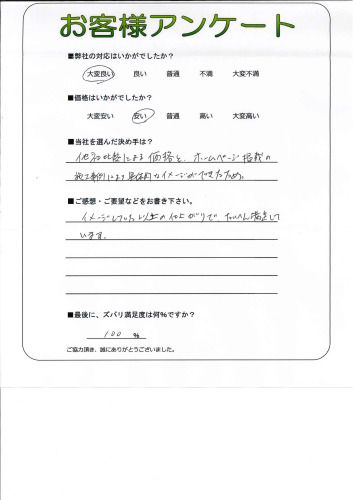 お客様アンケート
■弊社の対応はいかがでしたか?
大変良い 良い 普通 不満 大変不満
■価格はいかがでしたか?
大変安い 安い 普通 高い 大変高い
■当社を選んだ決め手は?
他社比較による価格と、ホームページ掲載の
施工事例により具体的なイメージができたため。
■ご感想・ご要望などをお書き下さい。
イメージしていた以上の仕上がりで、たいへん満足して
います。
■最後に、ズバリ満足度は何%ですか?
100 %
ご協力頂き、誠にありがとうございました。